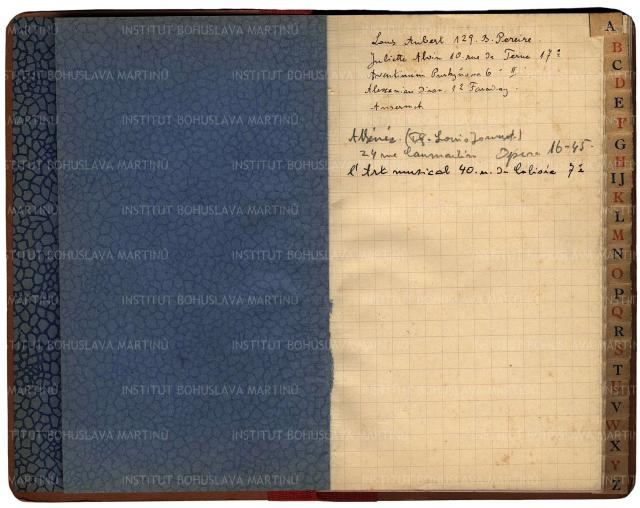 Louis Aubert 129. B. Pereire.
Juliette Alvin 10 rue de Terne 17e
Aventinum Purkyňova 6 - II
Diran. 12 Faraday.
Ansermet
Athénée. (Th. Louis Jouvet.)
24 rue Caumartin Opera 16-45.
l'Art musical 40. r. du Colisée 7e
A
B
C
D
E
F
G
H
IJ
K
L
M
N
O
P
Q
R
S
T
U
V
W
X
Y
Z
INSTITUT BOHUSLAVA MARTINŮ